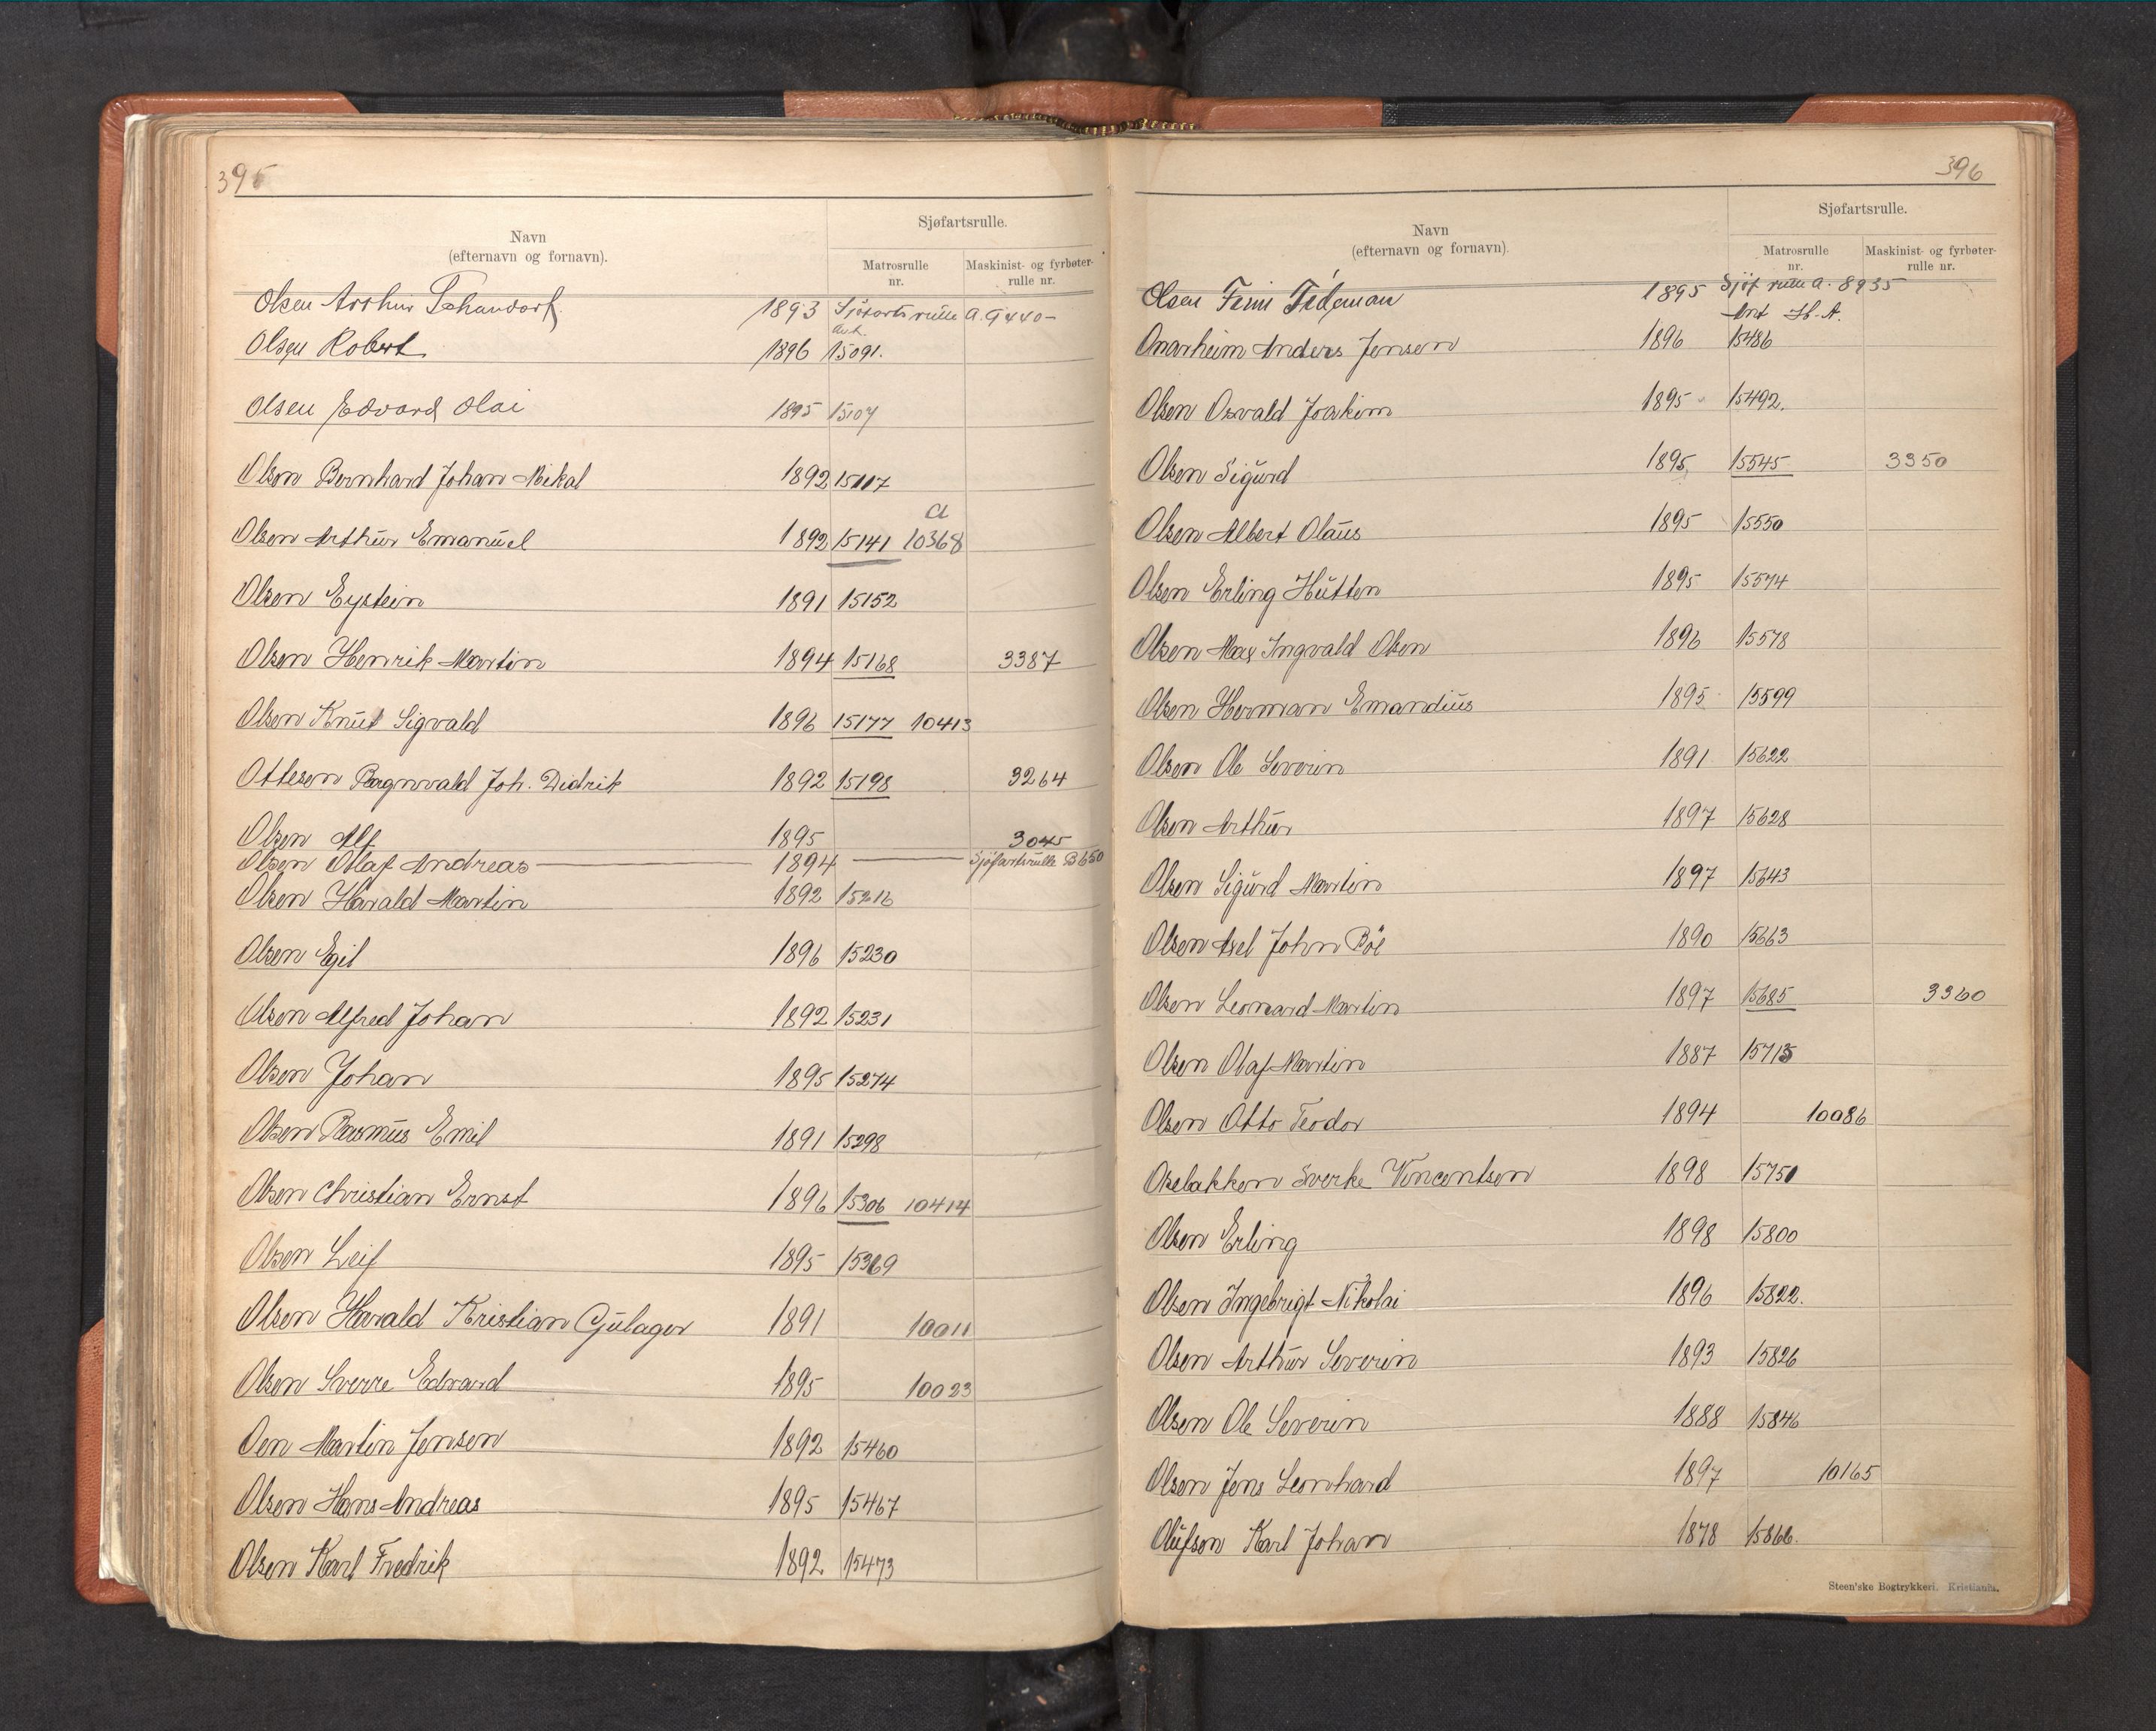 395
Sjøfartsrulle.
Navn
(efternavn og fornavn).
Matrosrulle
nr.
Maskinist- og fyrbøter-
rulle nr.
Olsen Arthur 1893 Sjøfartsrulle A. 9440-
Olsen Robert 1896 15091.
Olsen Edvard Olai 1895 15107
Olsen Bernhard Johan Mikal 1892 15117
a
Olsen Arthur Emanuel 1892 15141 10368
Olsen Eystein 1891 15152
Olsen Henrik Martin 1894 15168 3387
Olsen Knut Sigvald 1896 15177 10413
Ottesen Ragnvald Joh. Didrik 1892 15198 3264
Olsen Alf 1895 3045
Olsen Olaf Andreas 1894 Sjøfartsrulle B 650
Olsen Harald Martin 1892 15216
Olsen Egil 1896 15230
Olsen Alfred Johan 1892 15231
Olsen Johan 1895 15274
Olsen Rasmus Emil 1891 15298
Olsen Christian Ernst 1896 15306 10414
Olsen Leif 1895 15369
Olsen Harald Kristian Gulager 1891 10011
Olsen Sverre Edvard 1895 10023
Oen Martin Jensen 1892 15460
Olsen Hans Andreas 1895 15467
Olsen Karl Fredrik 1892 15473
396
Sjøfartsrulle.
Navn
(efternavn og fornavn).
Matrosrulle
nr.
Maskinist- og fyrbøter-
rulle nr.
Olsen Finn Tideman 1895 Sjøf rulle A. 8935
Onarheim Anders Jensen 1896 15486
Olsen Osvald Joakim 1895 15492.
Olsen Sigurd 1895 15545 3350
Olsen Albert Olaus 1895 15550
Olsen Erling Hutten 1895 15574
Olsen Max Ingvald Olsen 1896 15578
Olsen Herman Emandius 1895 15599
Olsen Ole Severin 1891 15622
Olsen Arthur 1897 15628
Olsen Sigurd Martin 1897 15643
Olsen Axel John Böe 1890 15663
Olsen Leonard Martin 1897 15685 3360
Olsen Olaf Martin 1887 15715
Olsen Otto Teodor 1894 10086
Oxelakken Sverke Vincentsen 1898 15750
Olsen Erling 1898 15800
Olsen Ingebrigt Nikolai 1896 15822.
Olsen Arthur Severin 1893 15826
Olsen Ole Severin 1888 15846
Olsen Jens Leonhard 1897 10165
Olufsen Karl Johan 1878 15866.
Steen'ske Bogtrykkeri. Kristiania.